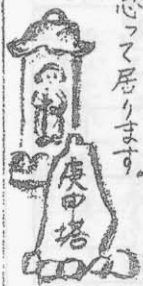 思って居ります。
庚申塔